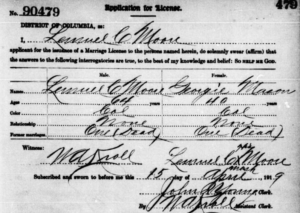 No. 90479 Application for License. 479
DISTRICT OF COLUMBIA, ss:
I, Lemuel C Moore
applicant for the issuance of a Marriage License to the persons named herein, do solemnly swear (affirm) that
the answers to the following interrogatories are true, to the best of my knowledge and belief: SO HELP ME GOD.
Name Lemuel C Moore Georgie Mason
Age years years
Color Col Col
Relationship None None
Former marriages One (Dead) One (Dead)
Witness:
W A Kroll Lemuel C Moore
his mark
Subscribed and sworn before me this 15 day of April 1919
John R Young Clerk.
W A Kroll Assistant Clerk.